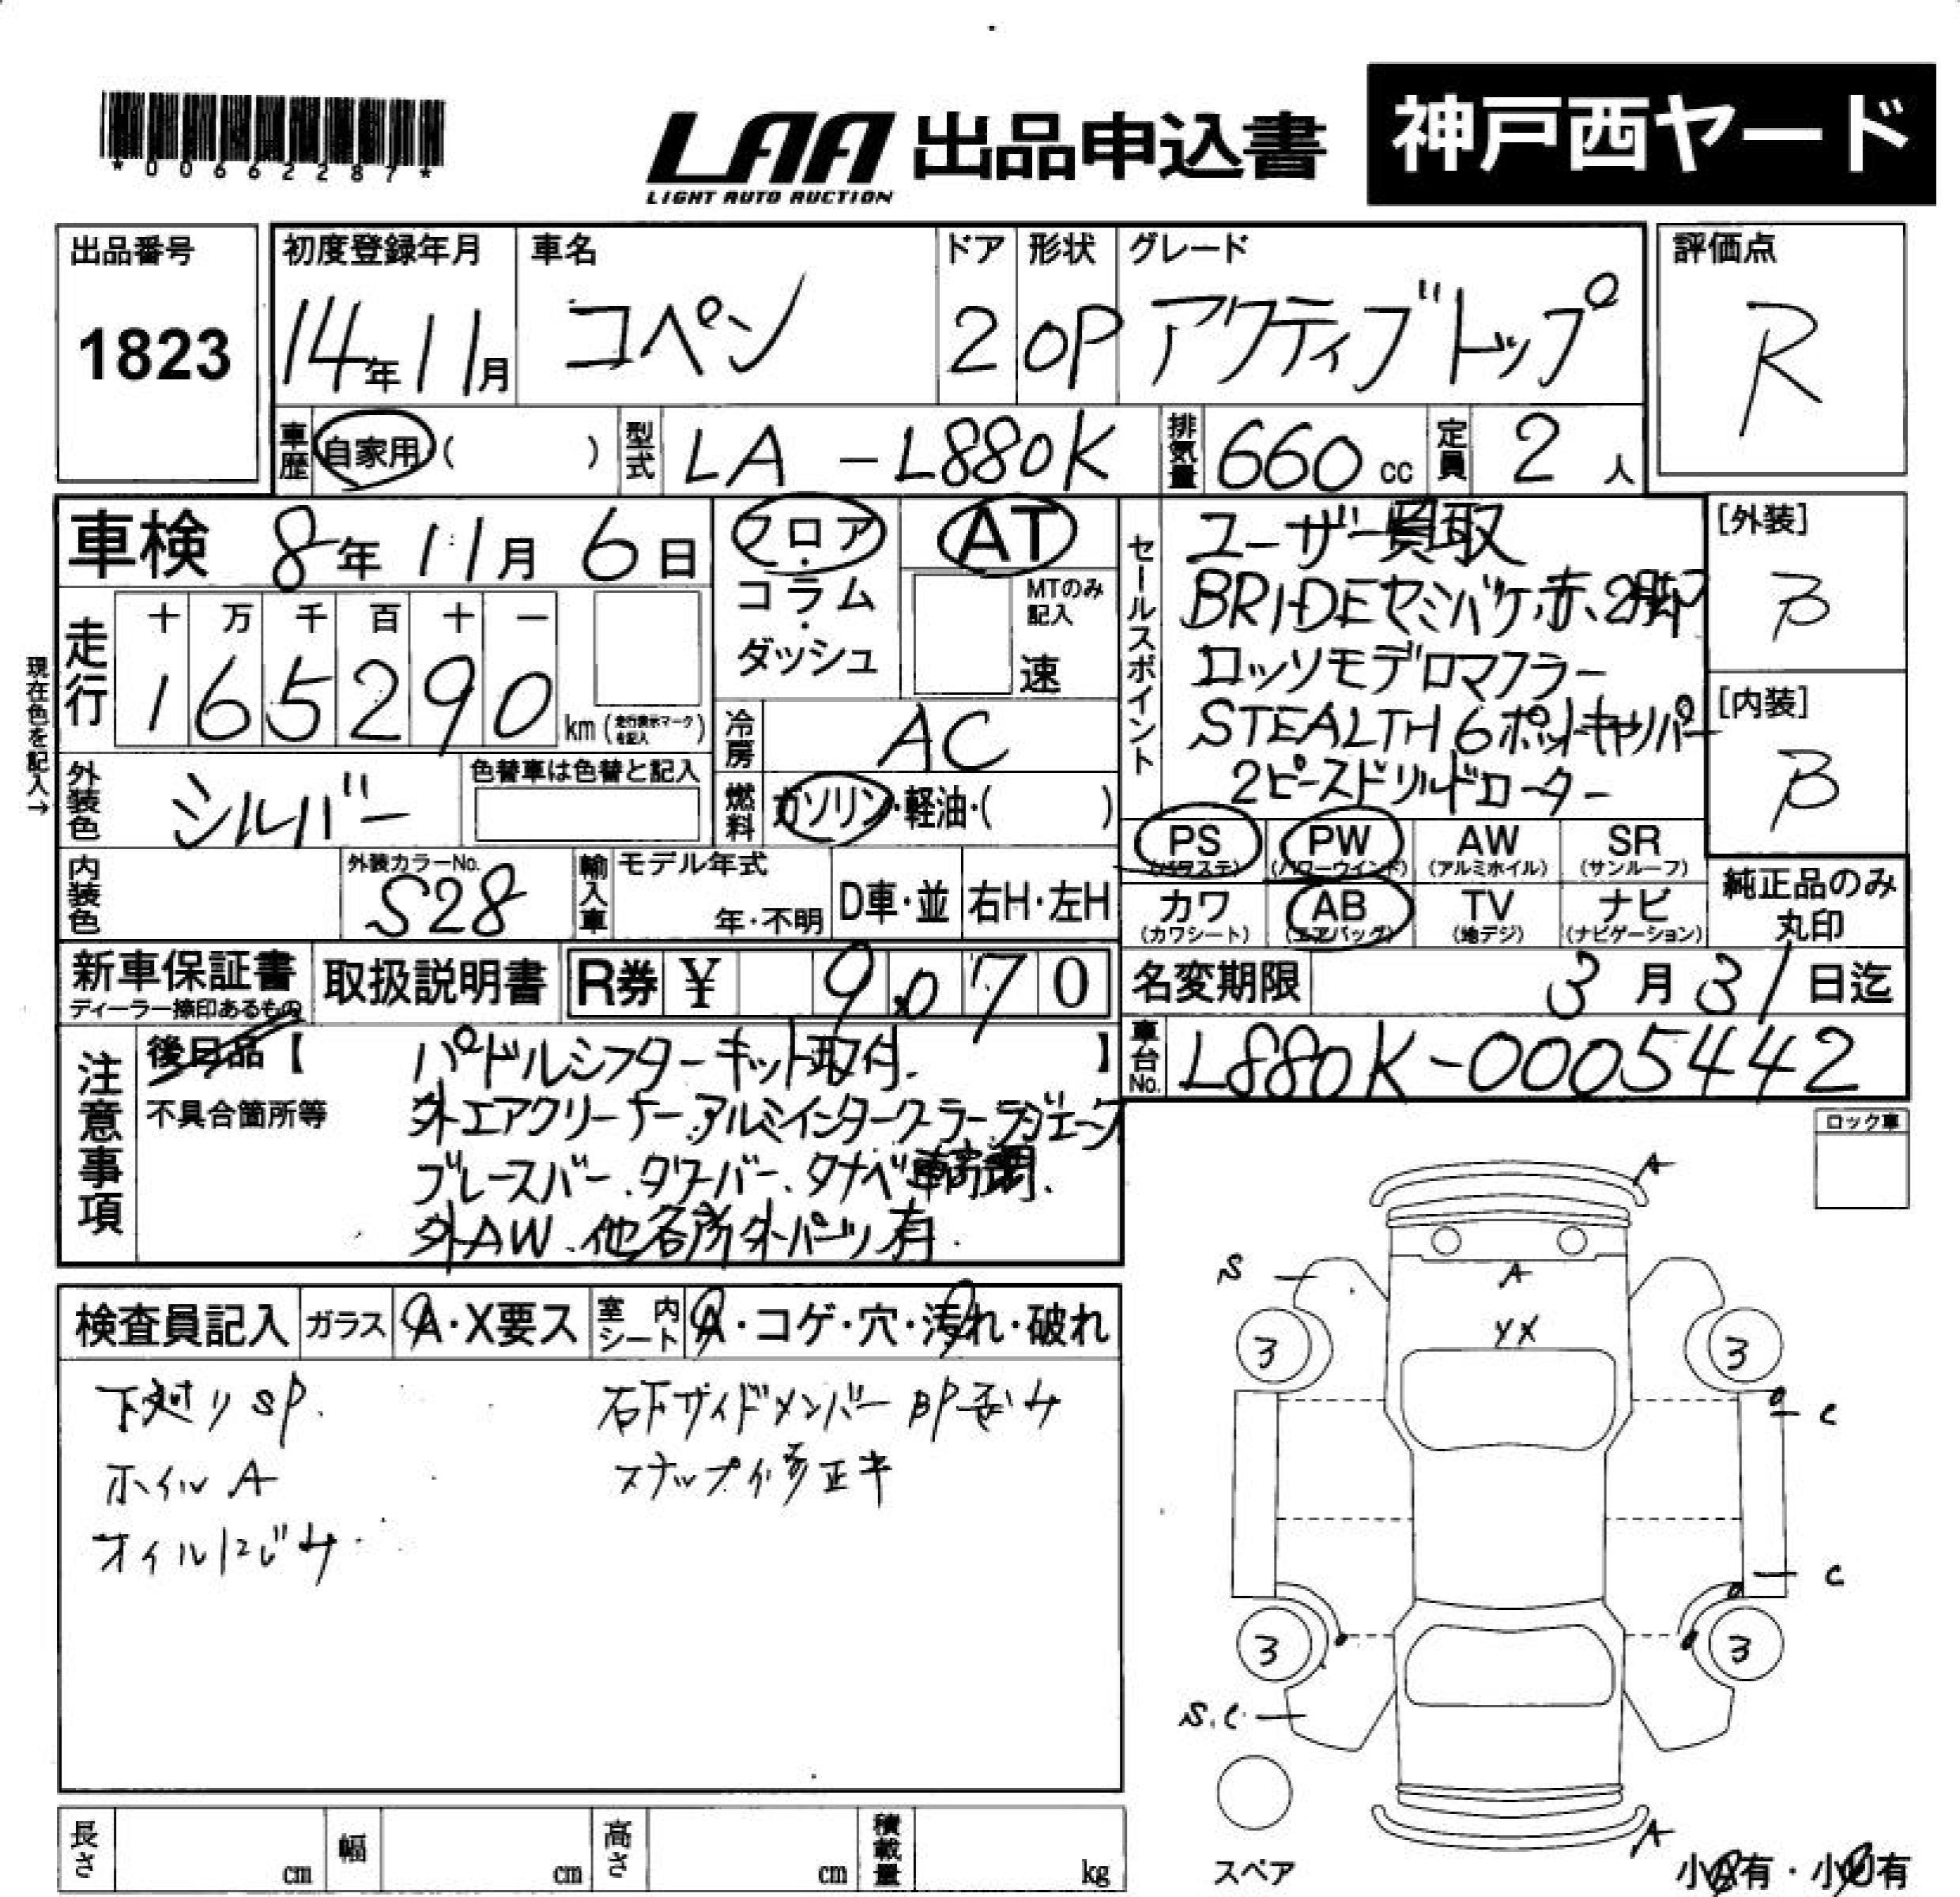 *00662287*
LAA 出品申込書 神戸西ヤード
LIGHT AUTO AUCTION
出品番号 初度登録年月 車名 ドア 形状 グレード 評価点
1823 14年11月 コペン 2 OP アクティブトップ R
車歴 自家用( ) 型式 LA-L880K 排気量 660cc 定員 2人
車検 8年11月6日 フロア・コラム・ダッシュ AT
MTのみ記入 速
現在色を記入→
走行 十万千百十一
165290 km(走行表示マークを記入)
冷房 AC
外装色 シルバー 色替車は色替と記入
燃料 ガソリン・軽油・( )
内装色 外装カラーNo. S28 輸入車 モデル年式 年・不明 D車・並 右H・左H
セールスポイント ユーザー買取
BRIDEセミバケ赤、2脚
ロッソモデロマフラー
STEALTH6ポットキャリパー
2ピースドリルドローター
[外装] B
[内装] B
PS(パワステ) PW(パワーウインド) AW(アルミホイル) SR(サンルーフ)
カワ(カワシート) AB(エアバッグ) TV(地デジ) ナビ(ナビゲーション)
純正品のみ丸印
新車保証書 ディーラー捺印あるもの 取扱説明書 R券 ¥ 9,070
名変期限 3月31日迄
車台No. L880K-0005442
注意事項 後日品【 パドルシフターキット取付. 】
不具合箇所等 外エアクリーナー.アルミインタークーラー.ラジエータ
ブレースバー.タワーバー.タナベ車高調.
外AW.他各所外パーツ有.
ロック車
検査員記入 ガラス A・X要ス 室内シート A・コゲ・穴・汚れ・破れ
下廻りSP. 右下サイドメンバーBP歪み
ホイルA スナップイ修正キ
オイルにじみ
A
S A
YX
3 3
C
C
3 3
S.C
A
スペア
小有・小有
長さ cm 幅 cm 高さ cm 積載量 kg